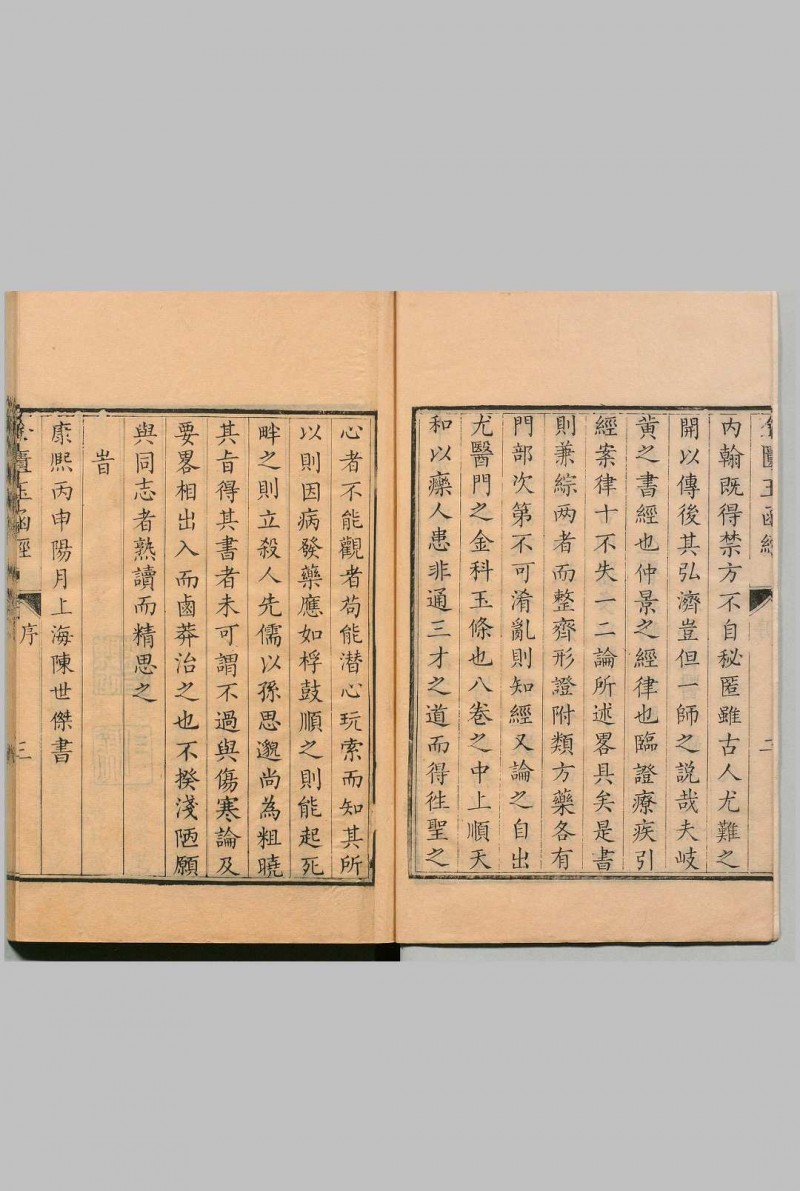 內翰既得禁方不自秘匿雖古人尤難之
開以傳後其弘濟豈但一師之説哉夫岐
黃之書經也仲景之經律也臨證療疾引
經案律十不失一二論所述畧具矣是書
則兼綜两者而整齊形證附類方藥各有
門部次第不可淆亂則知經又論之自出
尤醫門之金科玉條也八卷之中上順天
和以療人患非通三才之道而得徃聖之
心者不能觀者苟能潛心玩索而知其所
以則因病發藥應如桴鼓順之則能起死
畔之則立殺人先儒以孫思邈尚為粗曉
其旨得其書者未可謂不過與傷寒論及
要畧相出入而鹵莽治之也不揆淺陋願
與同志者熟讀而精思之
旹
康熙丙申陽月上海陳世傑書
匱玉函經
序
三